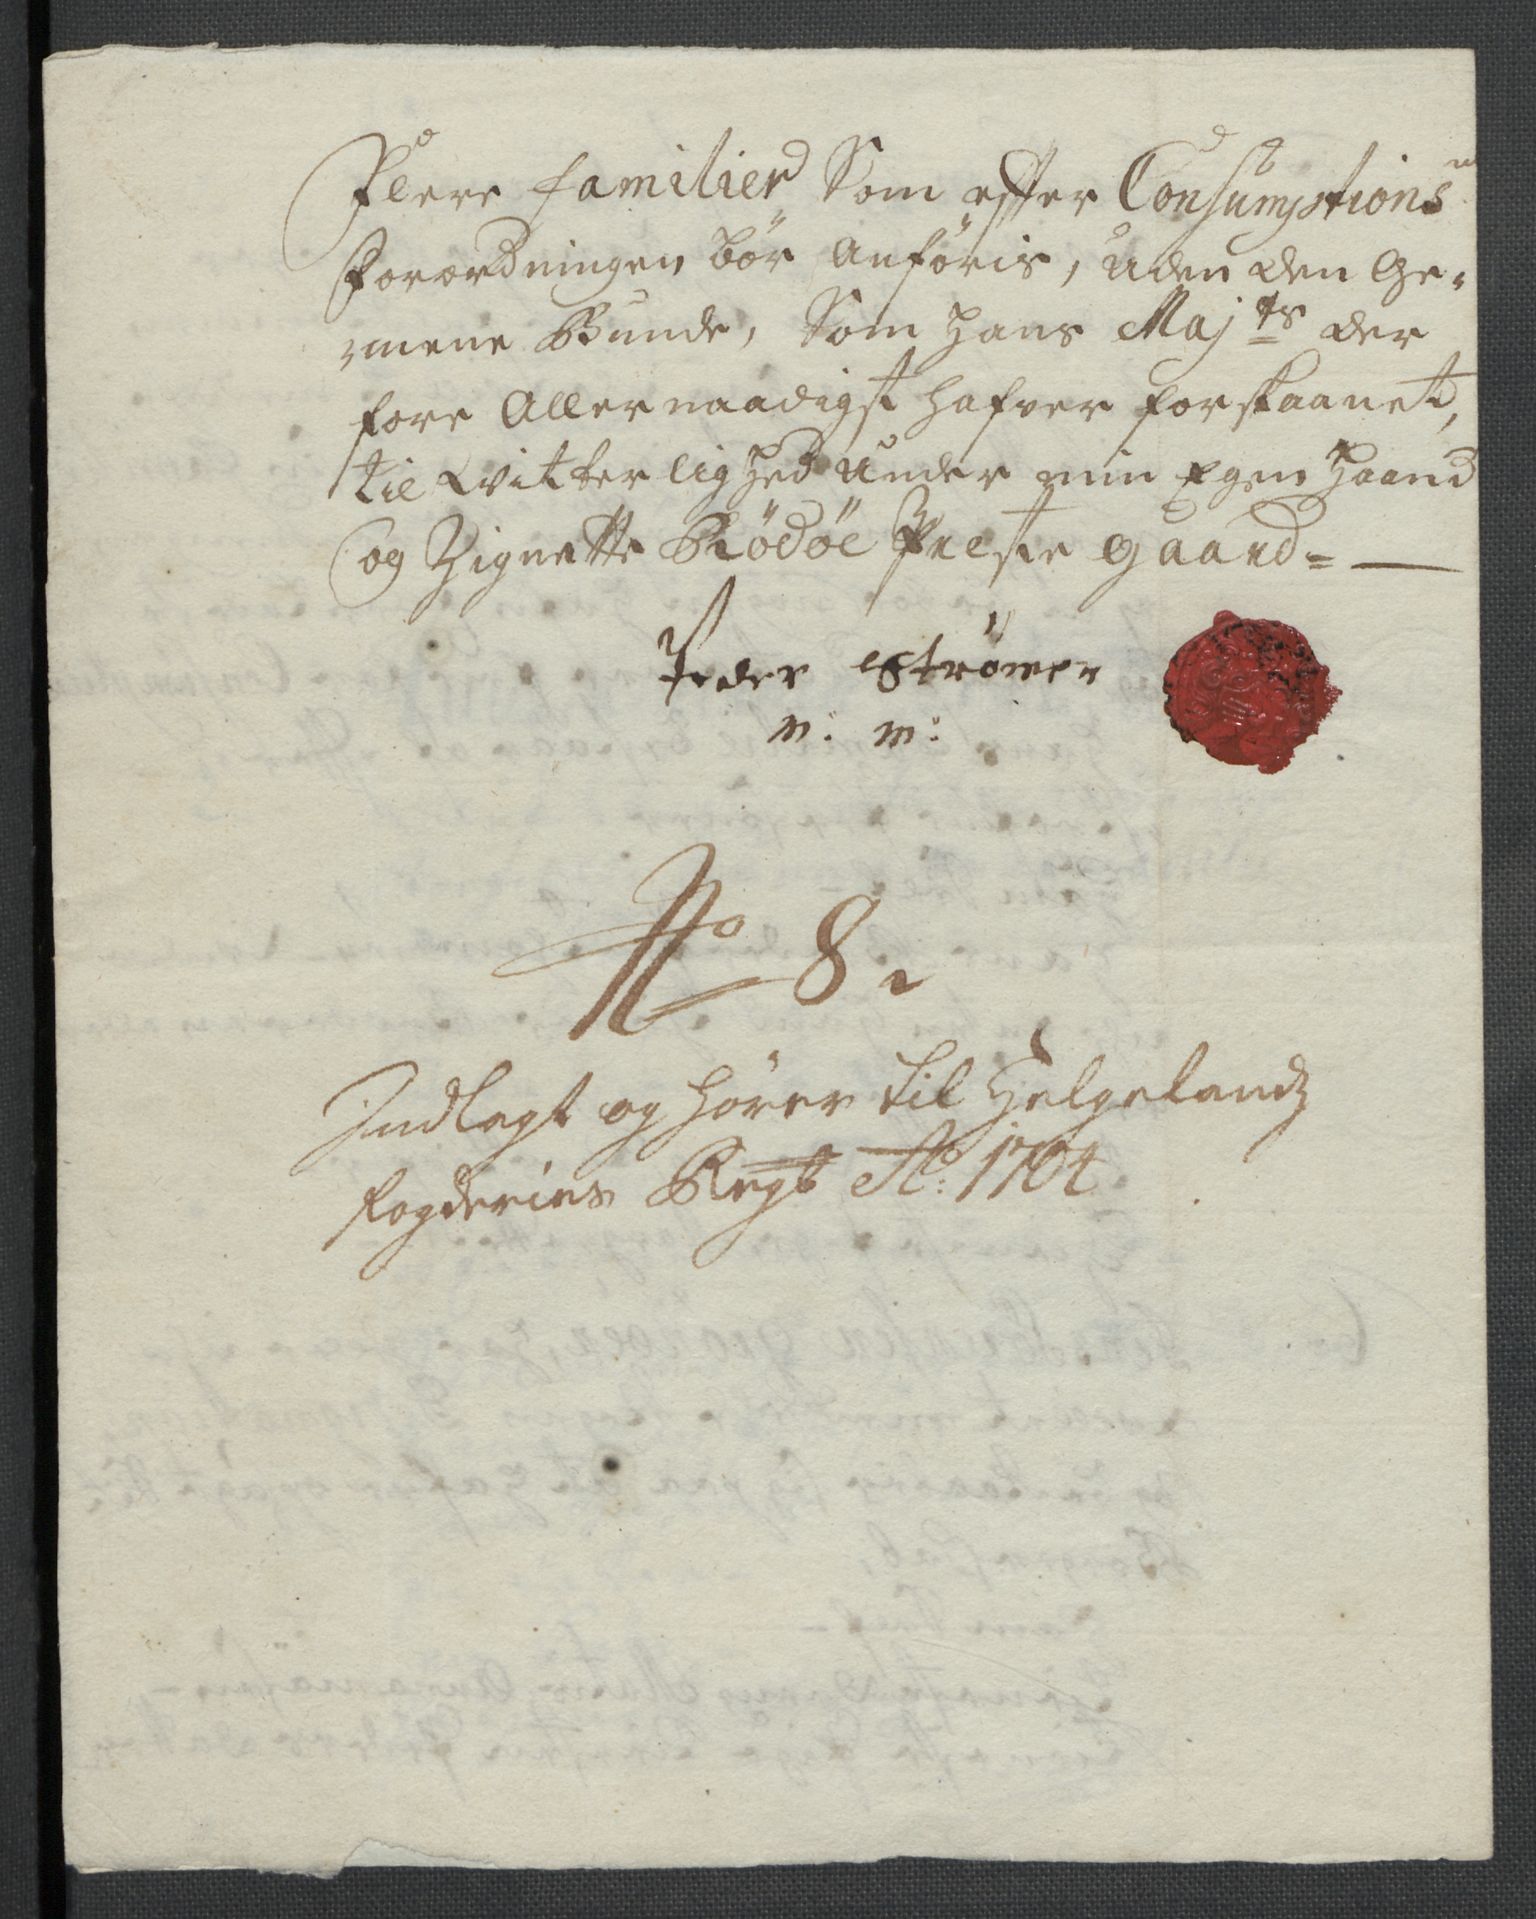 Flere familier Som effter Consumptions
Forordningen bör Anföris, uden den Ge-
mene Bunde, Som Hans Maj:ts der
fore Allernaadigst hafver forskaanet,
til Vitterlighed under min Egen Haand
og Zignette Rödöe Præste gaard=
Peder Strömer
m: m:
No 8.
Indlagt og hörer til Helgelandz
fogderies Regb Ao: 1704